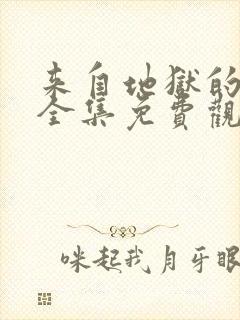 来自地獄的
全集免費觀
咪起我月牙眼